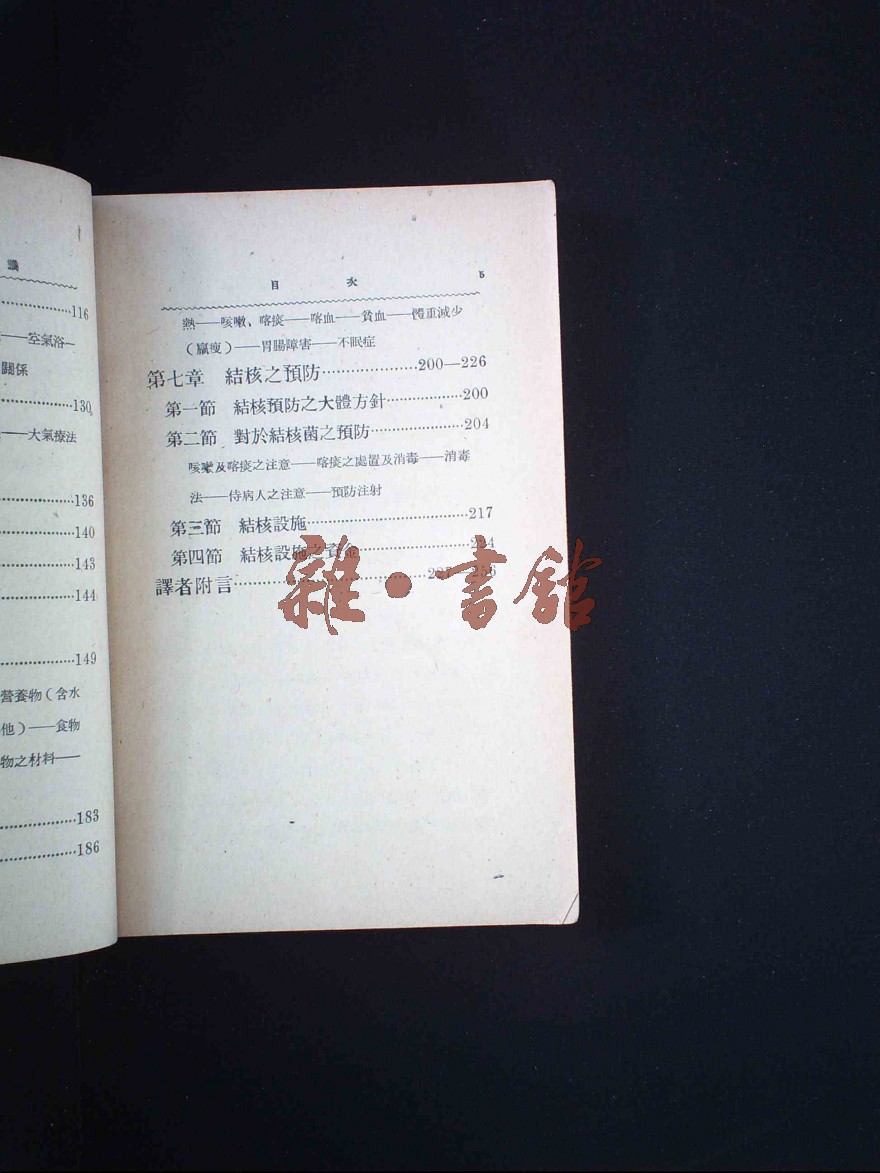 議
116
空氣浴—
關係
130
——大氣療法
136
140
143
144
149
營養物(含水
他)——食物
物之材料——
183
186
目 次 5
熱——咳嗽、喀痰——喀血——貧血——體重減少
(羸瘦)——胃腸障害——不眠症
第七章 結核之預防…………………200—226
第一節 結核預防之大體方針………………200
第二節 對於結核菌之預防…………………204
咳嗽及喀痰之注意——喀痰之處置及消毒——消毒
法——侍病人之注意——預防注射
第三節 結核設施………………………………217
第四節 結核設施之資金……………………224
譯者附言
雜·書館